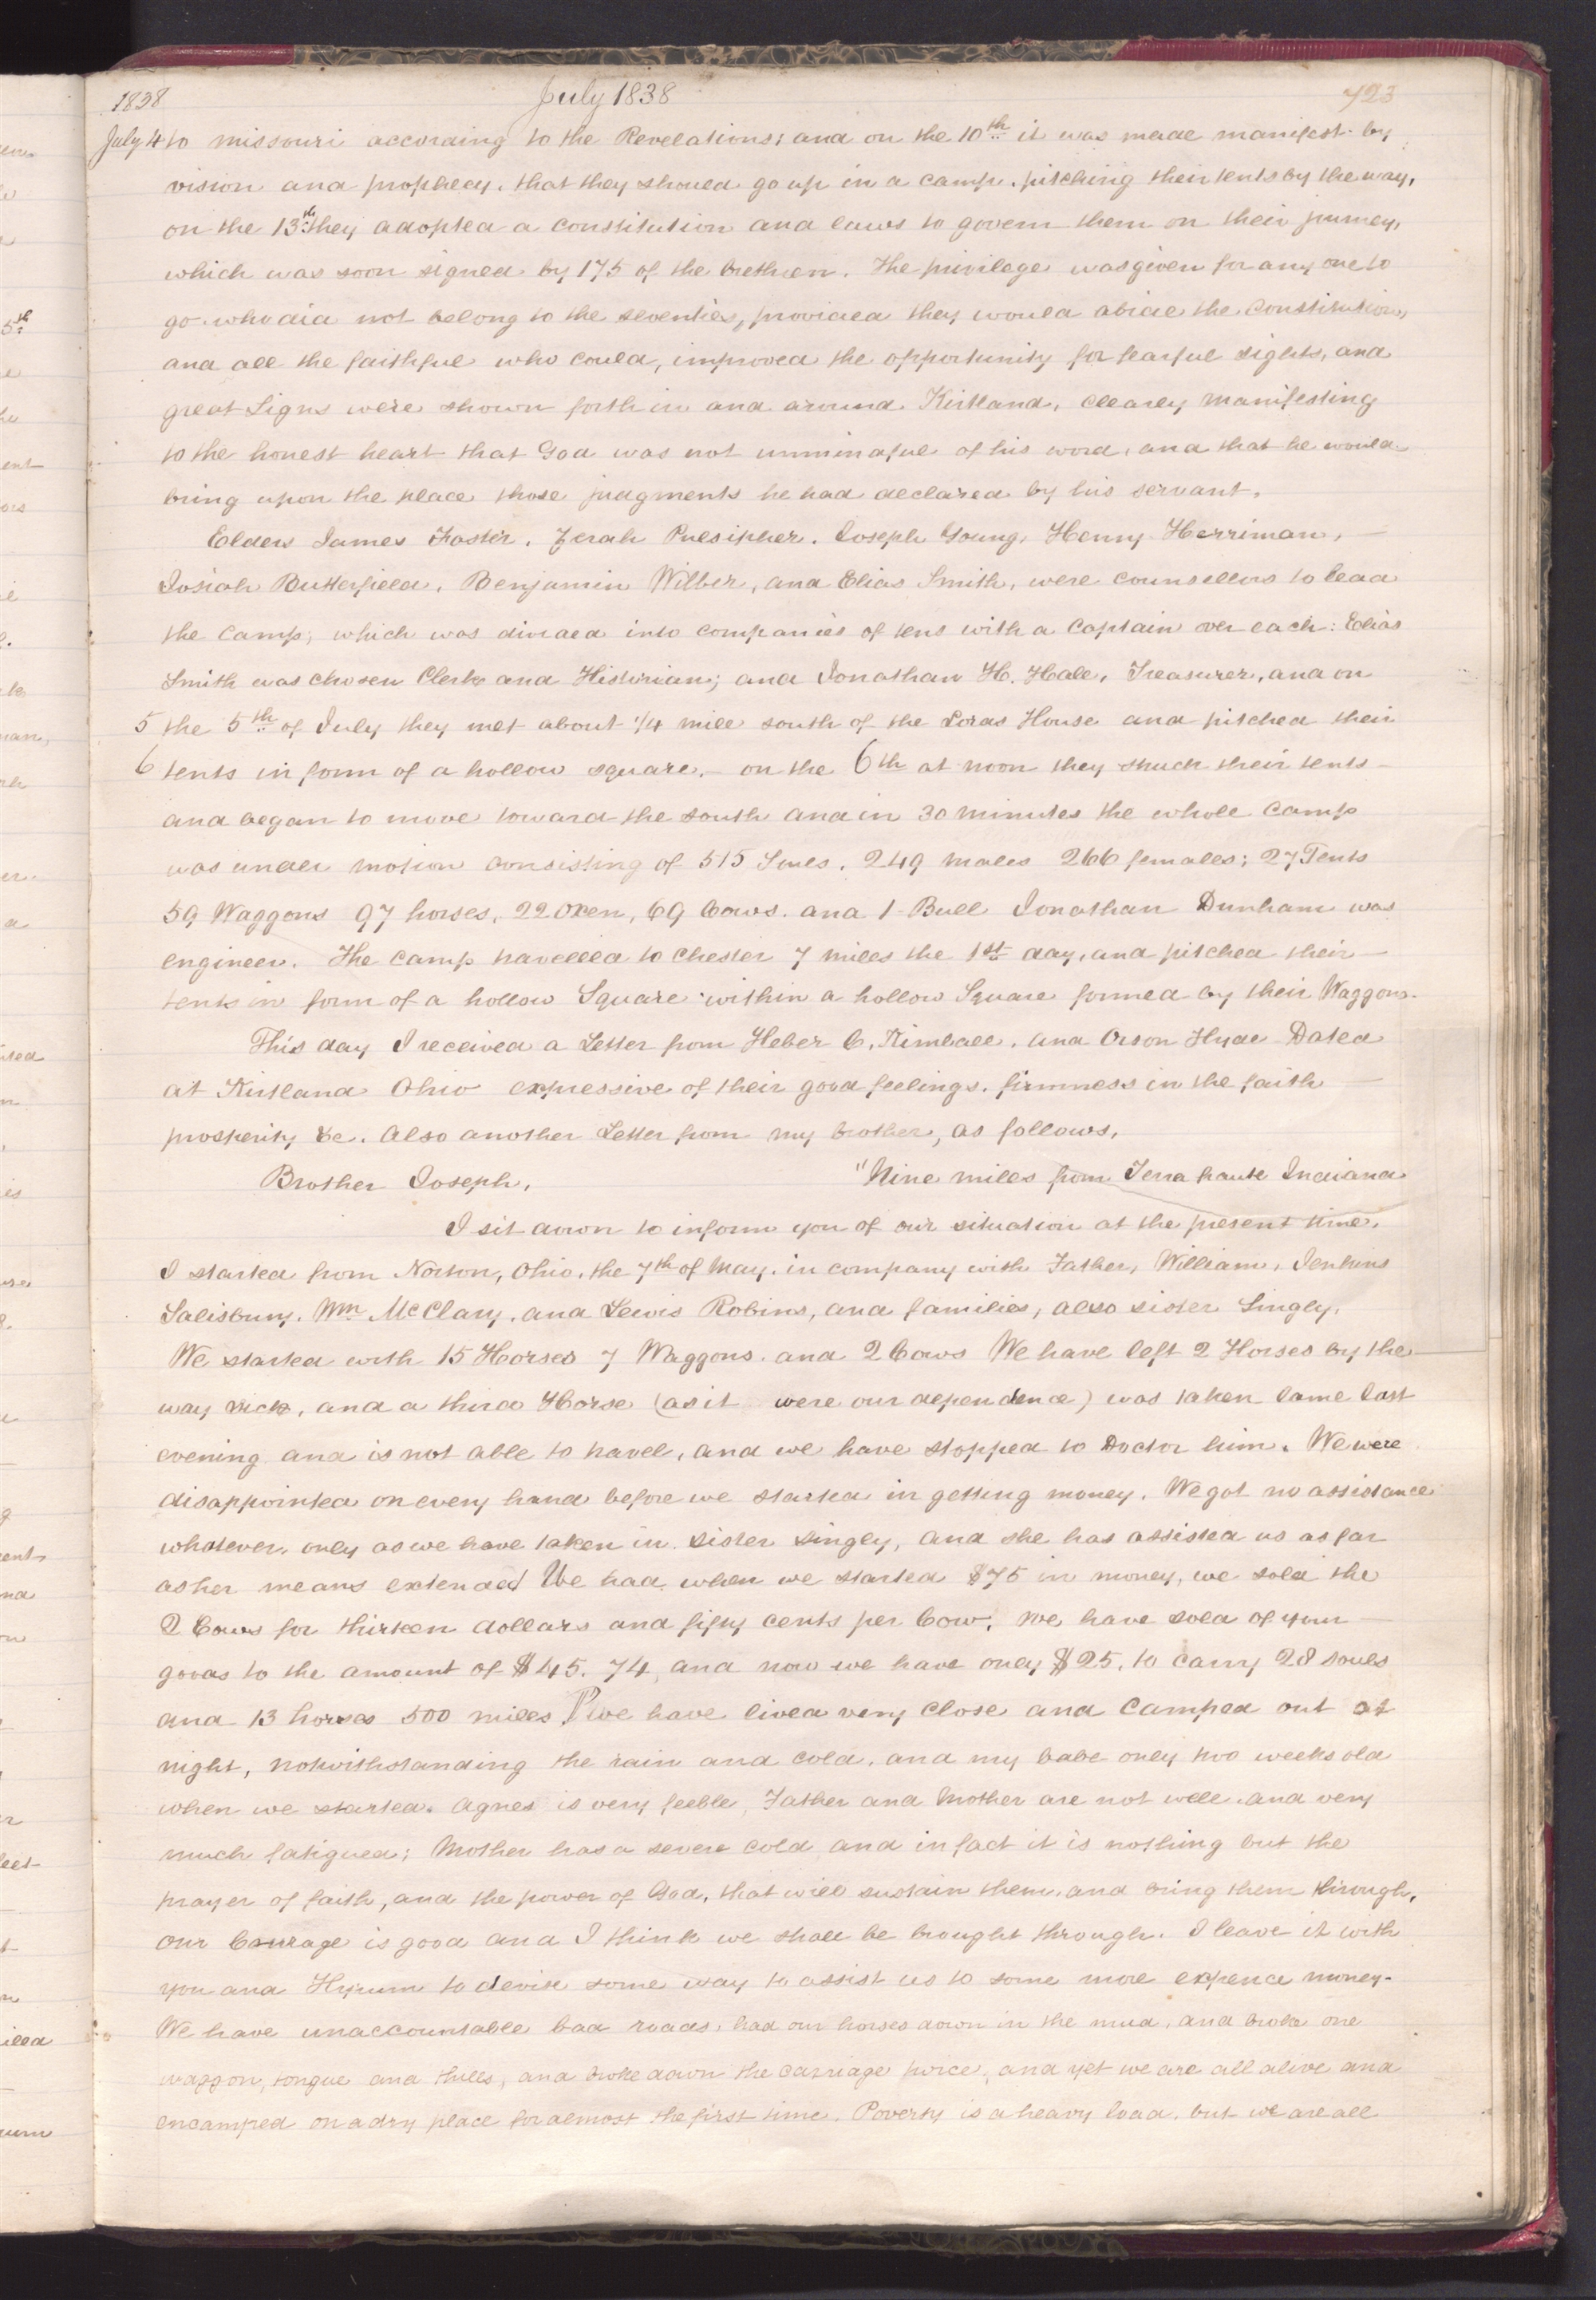 1838 July 1838 723
July 4 to missouri according to the Revelations; and on the 10th it was made manifest by
vision and prophecy, that they should go up in a camp, pitching their tents by the way,
on the 13th they adopted a constitution and laws to govern them on their journey,
which was soon signed by 175 of the brethren. The privilege was given for any one to
go who did not belong to the seventies, provided they would abide the constitution,
and all the faithful who could, improved the opportunity for fearful sights, and
great Signs were shown forth in and around Kirtland, clearly manifesting
to the honest heart that God was not unmindful of his word, and that he would
bring upon the place those judgments he had declared by his servant.
Elders James Foster, Zerah Pulsipher, Joseph Young, Henry Herriman,
Josiah Butterfield, Benjamin Wilber, and Elias Smith, were counsellors to lead
the camp; which was divided into companies of tens with a Captain over each: Elias
Smith was chosen Clerk and Historian; and Jonathan H. Hale, Treasurer, and on
5 the 5th of July they met about 1/4 mile south of the Lords House and pitched their
6 tents in form of a hollow square.— on the 6th at noon they struck their tents
and began to move toward the south and in 30 minutes the whole camp
was under motion consisting of 515 Souls, 249 males 266 females; 27 Tents
59 Waggons 97 horses, 22 oxen, 69 Cows, and 1 Bull Jonathan Dunham was
engineer. The camp travelled to Chester 7 miles the 1st day, and pitched their
tents in form of a hollow Square within a hollow Square formed by their Waggons.
This day I received a Letter from Heber C. Kimball, and Orson Hyde Dated
at Kirtland Ohio expressive of their good feelings, firmness in the faith
prosperity &c. Also another Letter from my brother, as follows,
Brother Joseph, "Nine miles from Terra haute Indiana
I sit down to inform you of our situation at the present time.
I started from Norton, Ohio, the 7th of May, in company with Father, William, Jenkins
Salisbury, Wm McClary, and Lewis Robins, and families, also sister Singly.
We started with 15 Horses 7 Waggons, and 2 Cows We have left 2 Horses by the
way sick, and a third Horse (as it were our dependence) was taken lame last
evening and is not able to travel, and we have stopped to Doctor him. We were
disappointed on every hand before we started in getting money. We got no assistance
whatever, only as we have taken in sister singly, and she has assisted us as far
as her means extended We had, when we started $75 in money, we sold the
2 Cows for thirteen dollars and fifty cents per Cow, we have sold of your
goods to the amount of $45.74, and now we have only $25, to carry 28 souls
and 13 horses 500 miles we have lived very close and camped out at
night, notwithstanding the rain and cold, and my babe only two weeks old
when we started. Agnes is very feeble, Father and Mother are not well and very
much fatigued; Mother has a severe cold and in fact it is nothing but the
prayer of faith, and the power of God, that will sustain them, and bring them through,
our Courage is good and I think we shall be brought through. I leave it with
you and Hyrum to devise some way to assist us to some more expence money.
We have unaccountable bad roads, had our horses down in the mud, and broke one
waggon, tongue and thills, and broke down the carriage twice, and yet we are all alive and
encamped on a dry place for almost the first time. Poverty is a heavy load, but we are all